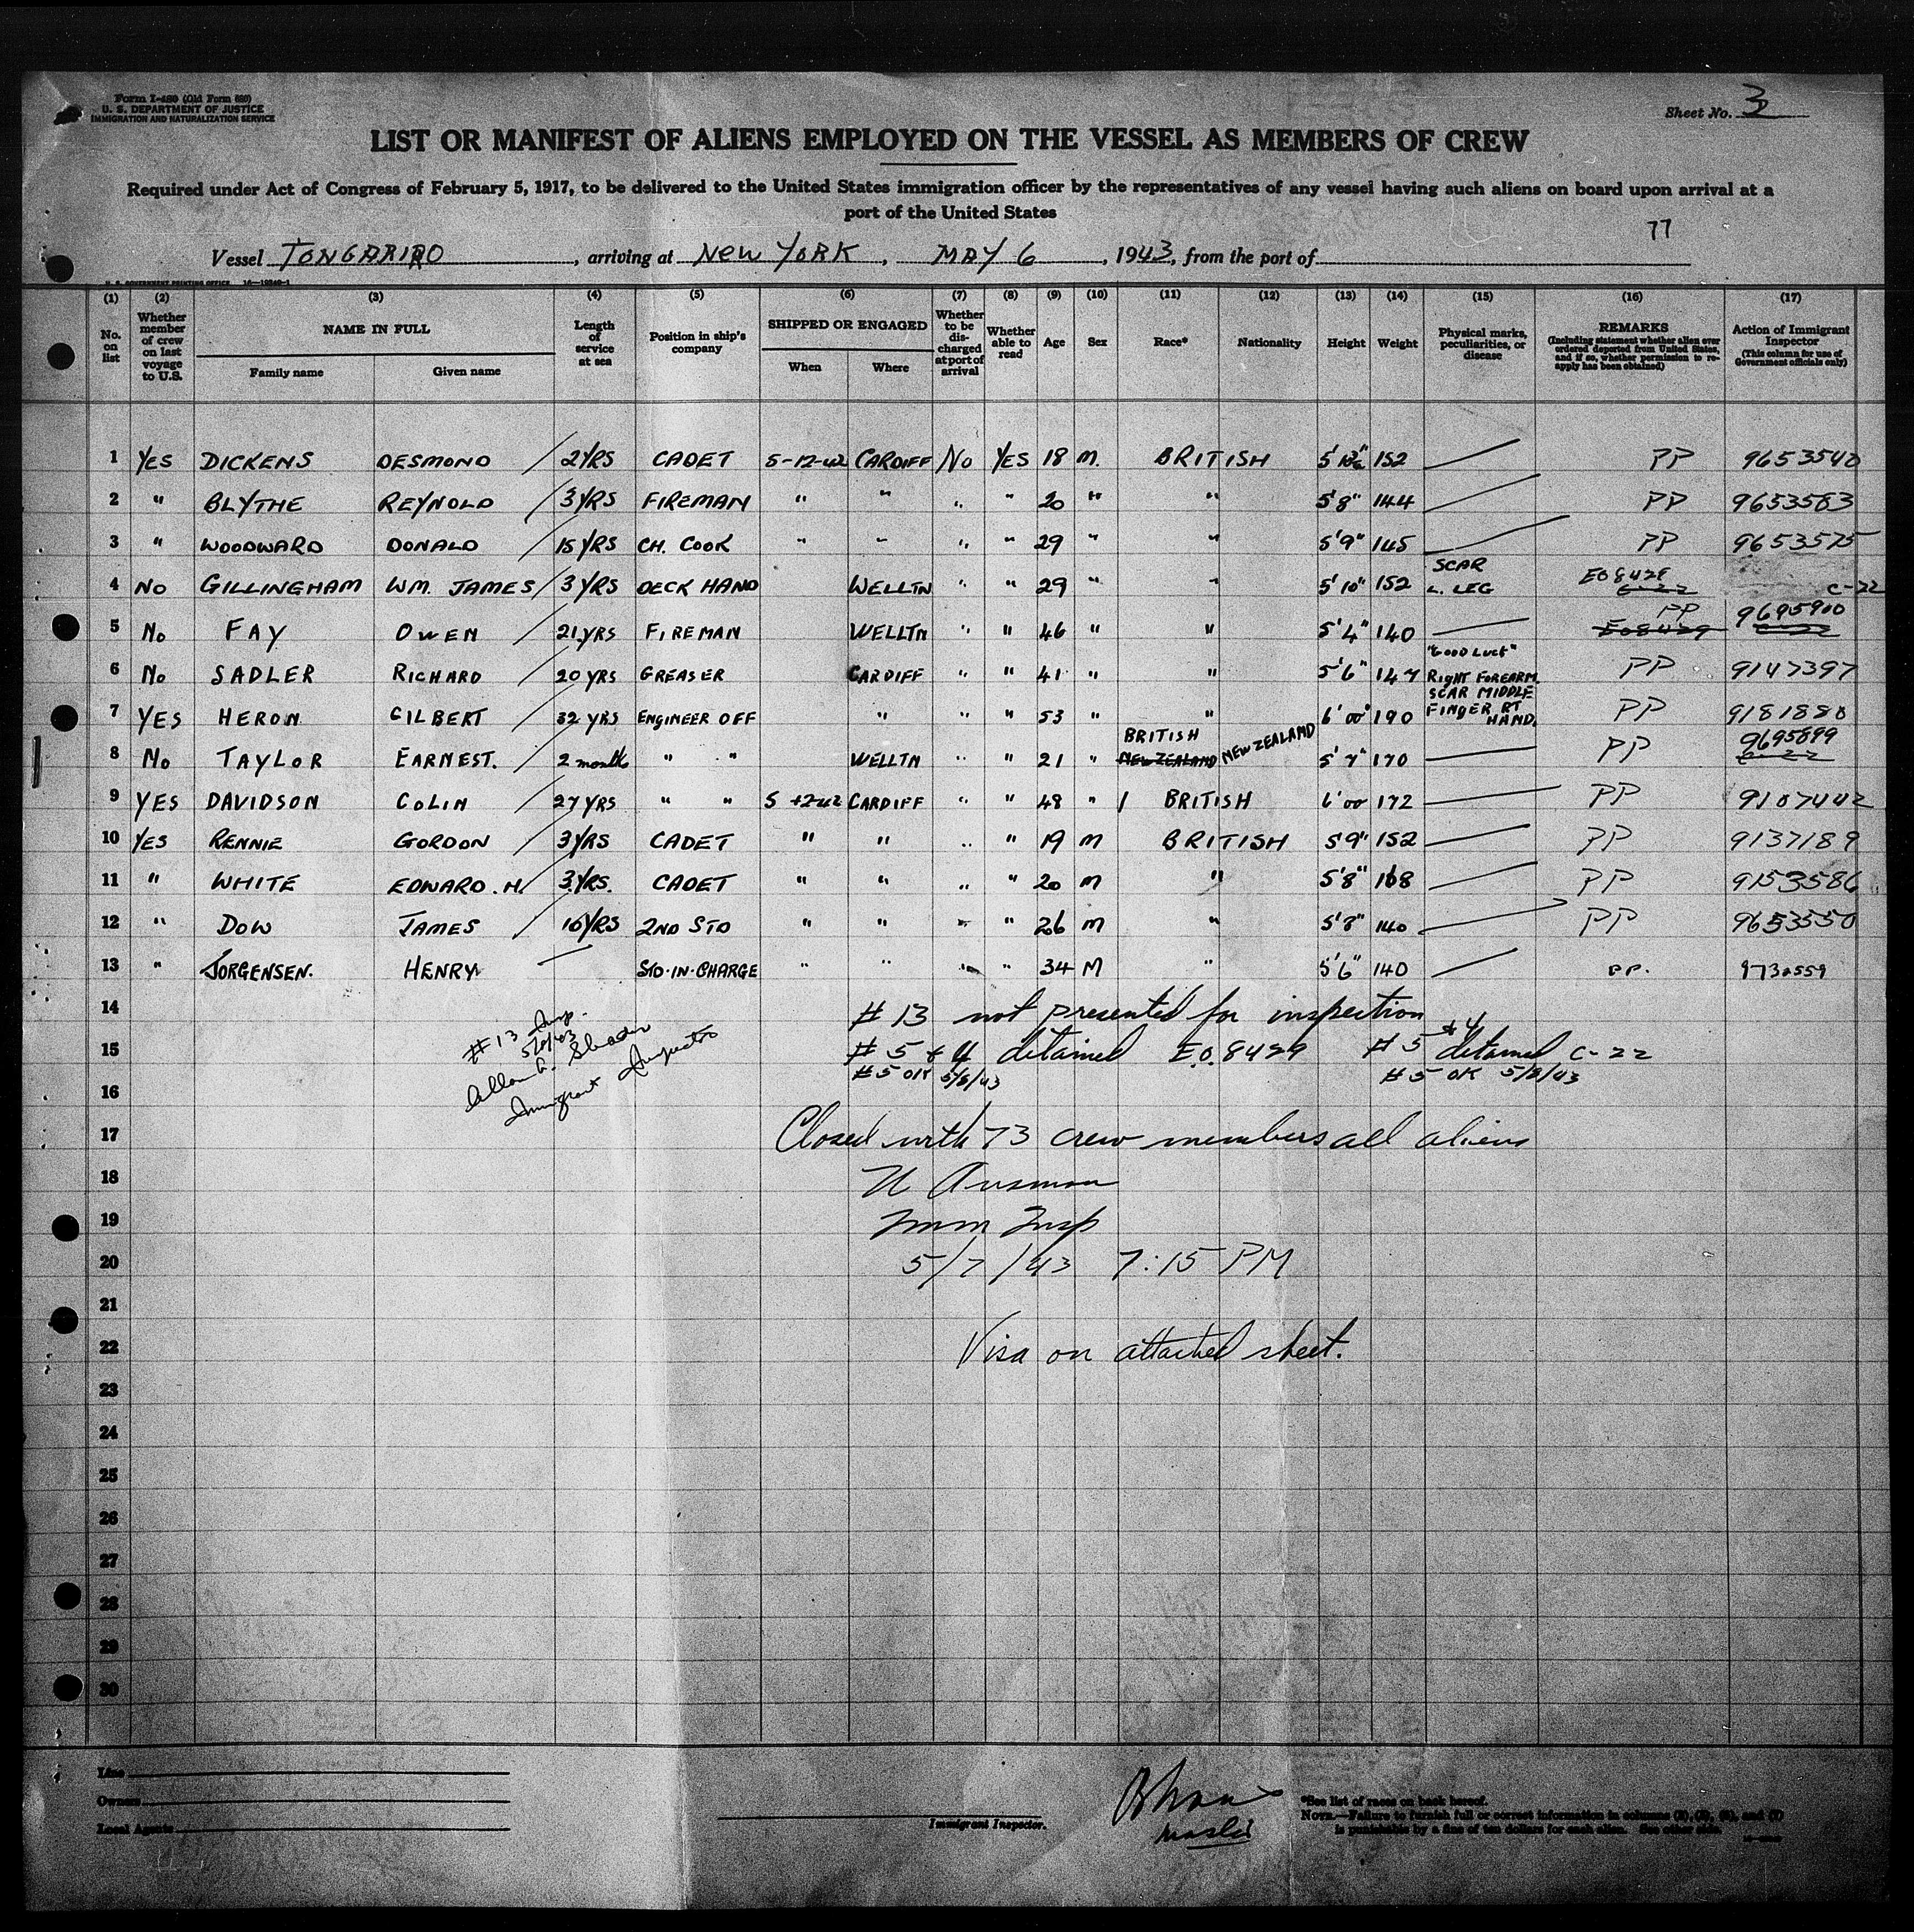 Form I-480 (Old Form 680)
U. S. DEPARTMENT OF JUSTICE
IMMIGRATION AND NATURALIZATION SERVICE
Sheet No. 3
LIST OR MANIFEST OF ALIENS EMPLOYED ON THE VESSEL AS MEMBERS OF CREW
Required under Act of Congress of February 5, 1917, to be delivered to the United States immigration officer by the representatives of any vessel having such aliens on board upon arrival at a
port of the United States
77
Vessel TONGARIRO, arriving at NEW YORK, MAY 6, 1943, from the port of
U. S. GOVERNMENT PRINTING OFFICE
(1) (2) (3) (4) (5) (6) (7) (8) (9) (10) (11) (12) (13) (14) (15) (16) (17)
No. on list Whether member of crew on last voyage to U.S. NAME IN FULL Family name Given name Length of service at sea Position in ship's company SHIPPED OR ENGAGED When Where Whether to be discharged at port of arrival Whether able to read Age Sex Race* Nationality Height Weight Physical marks, peculiarities, or disease REMARKS (Including statement whether alien ever ordered deported from United States, and if so, whether permission to reapply has been obtained) Action of Immigrant Inspector (This column for use of Government officials only)
1 YES DICKENS DESMOND 2YRS CADET 5-12-42 CARDIFF NO YES 18 M. BRITISH 152 PP 9653540
2 " BLYTHE REYNOLD 3YRS FIREMAN " " " " 20 " " 5'8" 144 PP 9653583
3 " WOODWARD DONALD 15YRS CH. COOK " " " " 29 " " 5'9" 145 PP 9653575
4 NO GILLINGHAM WM. JAMES 3YRS DECK HAND WELLTN " " 29 " " 5'10" 152 SCAR L. LEG EO8429 C-22 C-22
5 NO FAY OWEN 21YRS FIREMAN WELLTN " " 46 " " 5'4" 140 PP EO8429 9695900 C-22
6 NO SADLER RICHARD 20YRS GREASER CARDIFF " " 41 " " 5'6" 147 "GOOD LUCK" RIGHT FOREARM. PP 9147397
7 YES HERON GILBERT 32 YRS ENGINEER OFF " " " 53 " " 6'00" 190 SCAR MIDDLE FINGER RT HAND. PP 9181880
8 NO TAYLOR EARNEST. 2 months " " WELLTN " " 21 " BRITISH NEW ZEALAND NEW ZEALAND 5'7" 170 PP 9695899 C-22
9 YES DAVIDSON COLIN 27YRS " " 5 12-42 CARDIFF " " 48 " BRITISH 6'00 172 PP 9107442
10 YES RENNIE GORDON 3YRS CADET " " " " 19 M BRITISH 5'9" 152 PP 9137189
11 " WHITE EDWARD.H. 3YRS. CADET " " " " 20 M " 5'8" 168 PP 9153586
12 " DOW JAMES 10YRS 2ND STD " " " " 26 M " 5'8" 140 PP 9653550
13 " JORGENSEN. HENRY STD-IN-CHARGE " " " " 34 M " 5'6" 140 PP. 9730559
14 # 13 not presented for inspection
# 13 Insp.
15 # 5 + 4 detained E.O. 8429 # 5 + 4 detained C-22
Allan G.
# 5 OK 5/8/43 # 5 OK 5/8/43
Immigrant Inspector
16
17 Closed with 73 crew members all aliens
18
19 Imm Insp
20 5/7/43 7:15 PM
21
22 Visa on attached sheet.
23
24
25
26
27
28
29
30
Line
Owners
Local Agents
Immigrant Inspector.
Master
*See list of races on back hereof.
NOTE.—Failure to furnish full or correct information in columns (2), (3), (6), and (7)
is punishable by a fine of ten dollars for each alien. See other side.